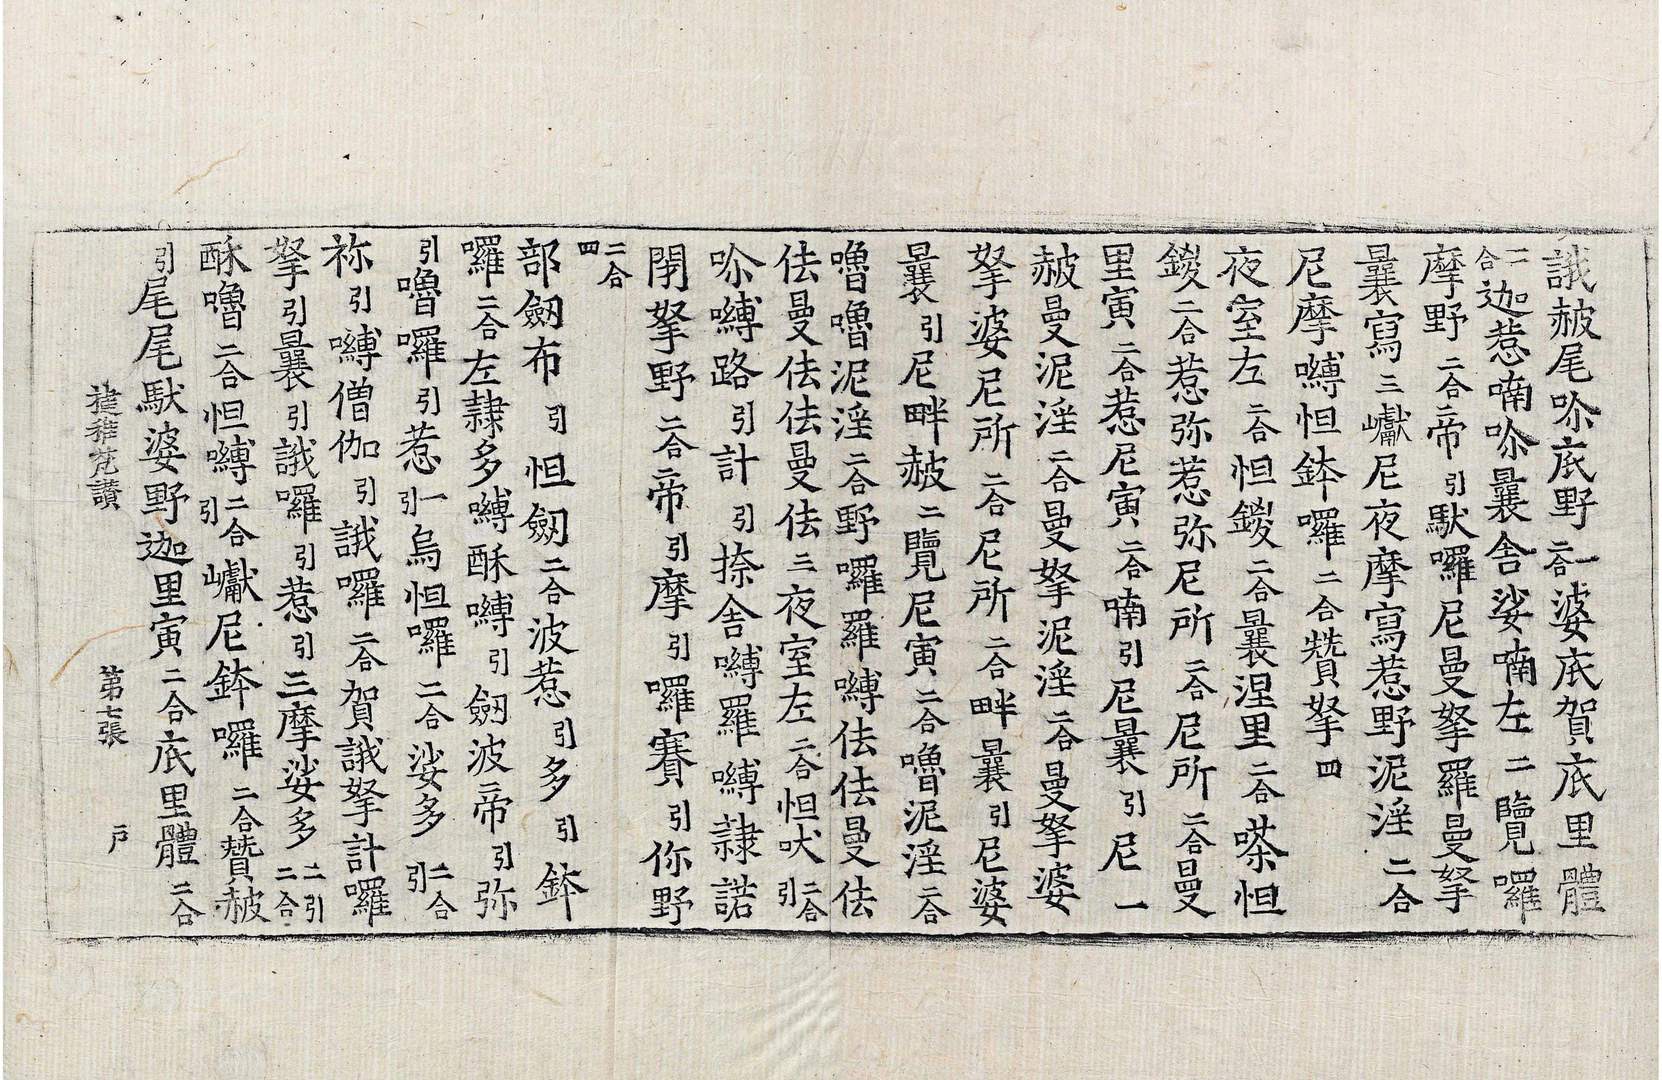 誐赦尾嘇底野二合一婆底賀底里體
二合迦惹喃嘇曩舍娑喃左二覽囉
摩野二合帝引馱囉尼曼拏羅曼拏
曩寫三巘尼夜摩寫惹野泥淫二合
尼摩嚩怛鉢囉二合贊拏四
夜室左二合怛鑁二合曩涅里二合嗏怛
鑁二合惹弥惹弥尼所二合尼所二合曼
里寅二合惹尼寅二合喃引尼曩引尼一
赦曼泥淫二合曼拏泥淫二合曼拏婆
拏婆尼所二合尼所二合畔曩引尼婆
曩引尼畔赦二覽尼寅二合嚕泥淫二合
嚕嚕泥淫二合野囉羅嚩佉佉曼佉
佉曼佉佉曼佉三夜室左二合怛吠二合引
嘇嚩路引計引捺舍嚩羅嚩隷諾
閉拏野二合帝引摩引囉賽引你野
二合四
部劒布引怛劒二合波惹引多引鉢
囉二合左隷多嚩酥嚩引劒波帝引弥
引嚕囉引惹一引烏怛囉二合娑多二合引
祢引嚩僧伽引誐囉二合賀誐拏計囉
拏引曩引誐囉引惹引三摩娑多二引二合
酥嚕二合怛嚩二合引巘尼鉢囉二合贊赦
引尾尾馱婆野迦里寅二合底里體二合
揵稚梵讚　第七張　戸